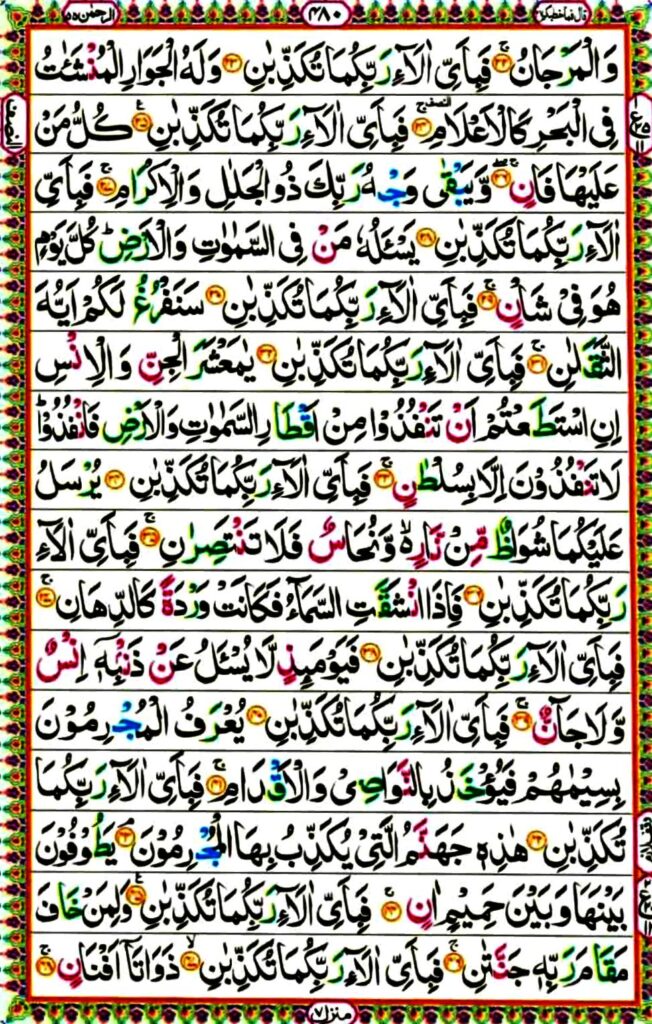 قال فما خطبكم ٢٧ ٤٨٠ الرحمٰن ٥٥
وَالْمَرْجَانُ ۚ﴿۲۲﴾ فَبِاَىِّ اٰلَآءِ رَبِّكُمَا تُكَذِّبٰنِ ﴿۲۳﴾ وَلَهُ الْجَوَارِ الْمُنْشَئٰتُ
فِى الْبَحْرِ كَالْاَعْلَامِ ۚ﴿۲۴﴾ فَبِاَىِّ اٰلَآءِ رَبِّكُمَا تُكَذِّبٰنِ ﴿۲۵﴾ كُلُّ مَنْ
عَلَيْهَا فَانٍ ۚ﴿۲۶﴾ وَّيَبْقٰى وَجْهُ رَبِّكَ ذُو الْجَلٰلِ وَالْاِكْرَامِ ۚ﴿۲۷﴾ فَبِاَىِّ
اٰلَآءِ رَبِّكُمَا تُكَذِّبٰنِ ﴿۲۸﴾ يَسْئَلُهٗ مَنْ فِى السَّمٰوٰتِ وَالْاَرْضِ ؕ كُلَّ يَوْمٍ
هُوَ فِىْ شَاْنٍ ۚ﴿۲۹﴾ فَبِاَىِّ اٰلَآءِ رَبِّكُمَا تُكَذِّبٰنِ ﴿۳۰﴾ سَنَفْرُغُ لَكُمْ اَيُّهَ
الثَّقَلٰنِ ۚ﴿۳۱﴾ فَبِاَىِّ اٰلَآءِ رَبِّكُمَا تُكَذِّبٰنِ ﴿۳۲﴾ يٰمَعْشَرَ الْجِنِّ وَالْاِنْسِ
اِنِ اسْتَطَعْتُمْ اَنْ تَنْفُذُوْا مِنْ اَقْطَارِ السَّمٰوٰتِ وَالْاَرْضِ فَانْفُذُوْا ؕ
لَا تَنْفُذُوْنَ اِلَّا بِسُلْطٰنٍ ۚ﴿۳۳﴾ فَبِاَىِّ اٰلَآءِ رَبِّكُمَا تُكَذِّبٰنِ ﴿۳۴﴾ يُرْسَلُ
عَلَيْكُمَا شُوَاظٌ مِّنْ نَّارٍ ۙ وَّنُحَاسٌ فَلَا تَنْتَصِرٰنِ ۚ﴿۳۵﴾ فَبِاَىِّ اٰلَآءِ
رَبِّكُمَا تُكَذِّبٰنِ ﴿۳۶﴾ فَاِذَا انْشَقَّتِ السَّمَآءُ فَكَانَتْ وَرْدَةً كَالدِّهَانِ ۚ﴿۳۷﴾
فَبِاَىِّ اٰلَآءِ رَبِّكُمَا تُكَذِّبٰنِ ﴿۳۸﴾ فَيَوْمَئِذٍ لَّا يُسْئَلُ عَنْ ذَنْۢبِهٖۤ اِنْسٌ
وَّلَا جَآنٌّ ۚ﴿۳۹﴾ فَبِاَىِّ اٰلَآءِ رَبِّكُمَا تُكَذِّبٰنِ ﴿۴۰﴾ يُعْرَفُ الْمُجْرِمُوْنَ
بِسِيْمٰهُمْ فَيُؤْخَذُ بِالنَّوَاصِىْ وَالْاَقْدَامِ ۚ﴿۴۱﴾ فَبِاَىِّ اٰلَآءِ رَبِّكُمَا
تُكَذِّبٰنِ ﴿۴۲﴾ هٰذِهٖ جَهَنَّمُ الَّتِىْ يُكَذِّبُ بِهَا الْمُجْرِمُوْنَ ۘ﴿۴۳﴾ يَطُوْفُوْنَ
بَيْنَهَا وَبَيْنَ حَمِيْمٍ اٰنٍ ۚ﴿۴۴﴾ فَبِاَىِّ اٰلَآءِ رَبِّكُمَا تُكَذِّبٰنِ ﴿۴۵﴾ وَلِمَنْ خَافَ
مَقَامَ رَبِّهٖ جَنَّتٰنِ ۚ﴿۴۶﴾ فَبِاَىِّ اٰلَآءِ رَبِّكُمَا تُكَذِّبٰنِ ۙ﴿۴۷﴾ ذَوَاتَاۤ اَفْنَانٍ ۚ﴿۴۸﴾
منزل ٧